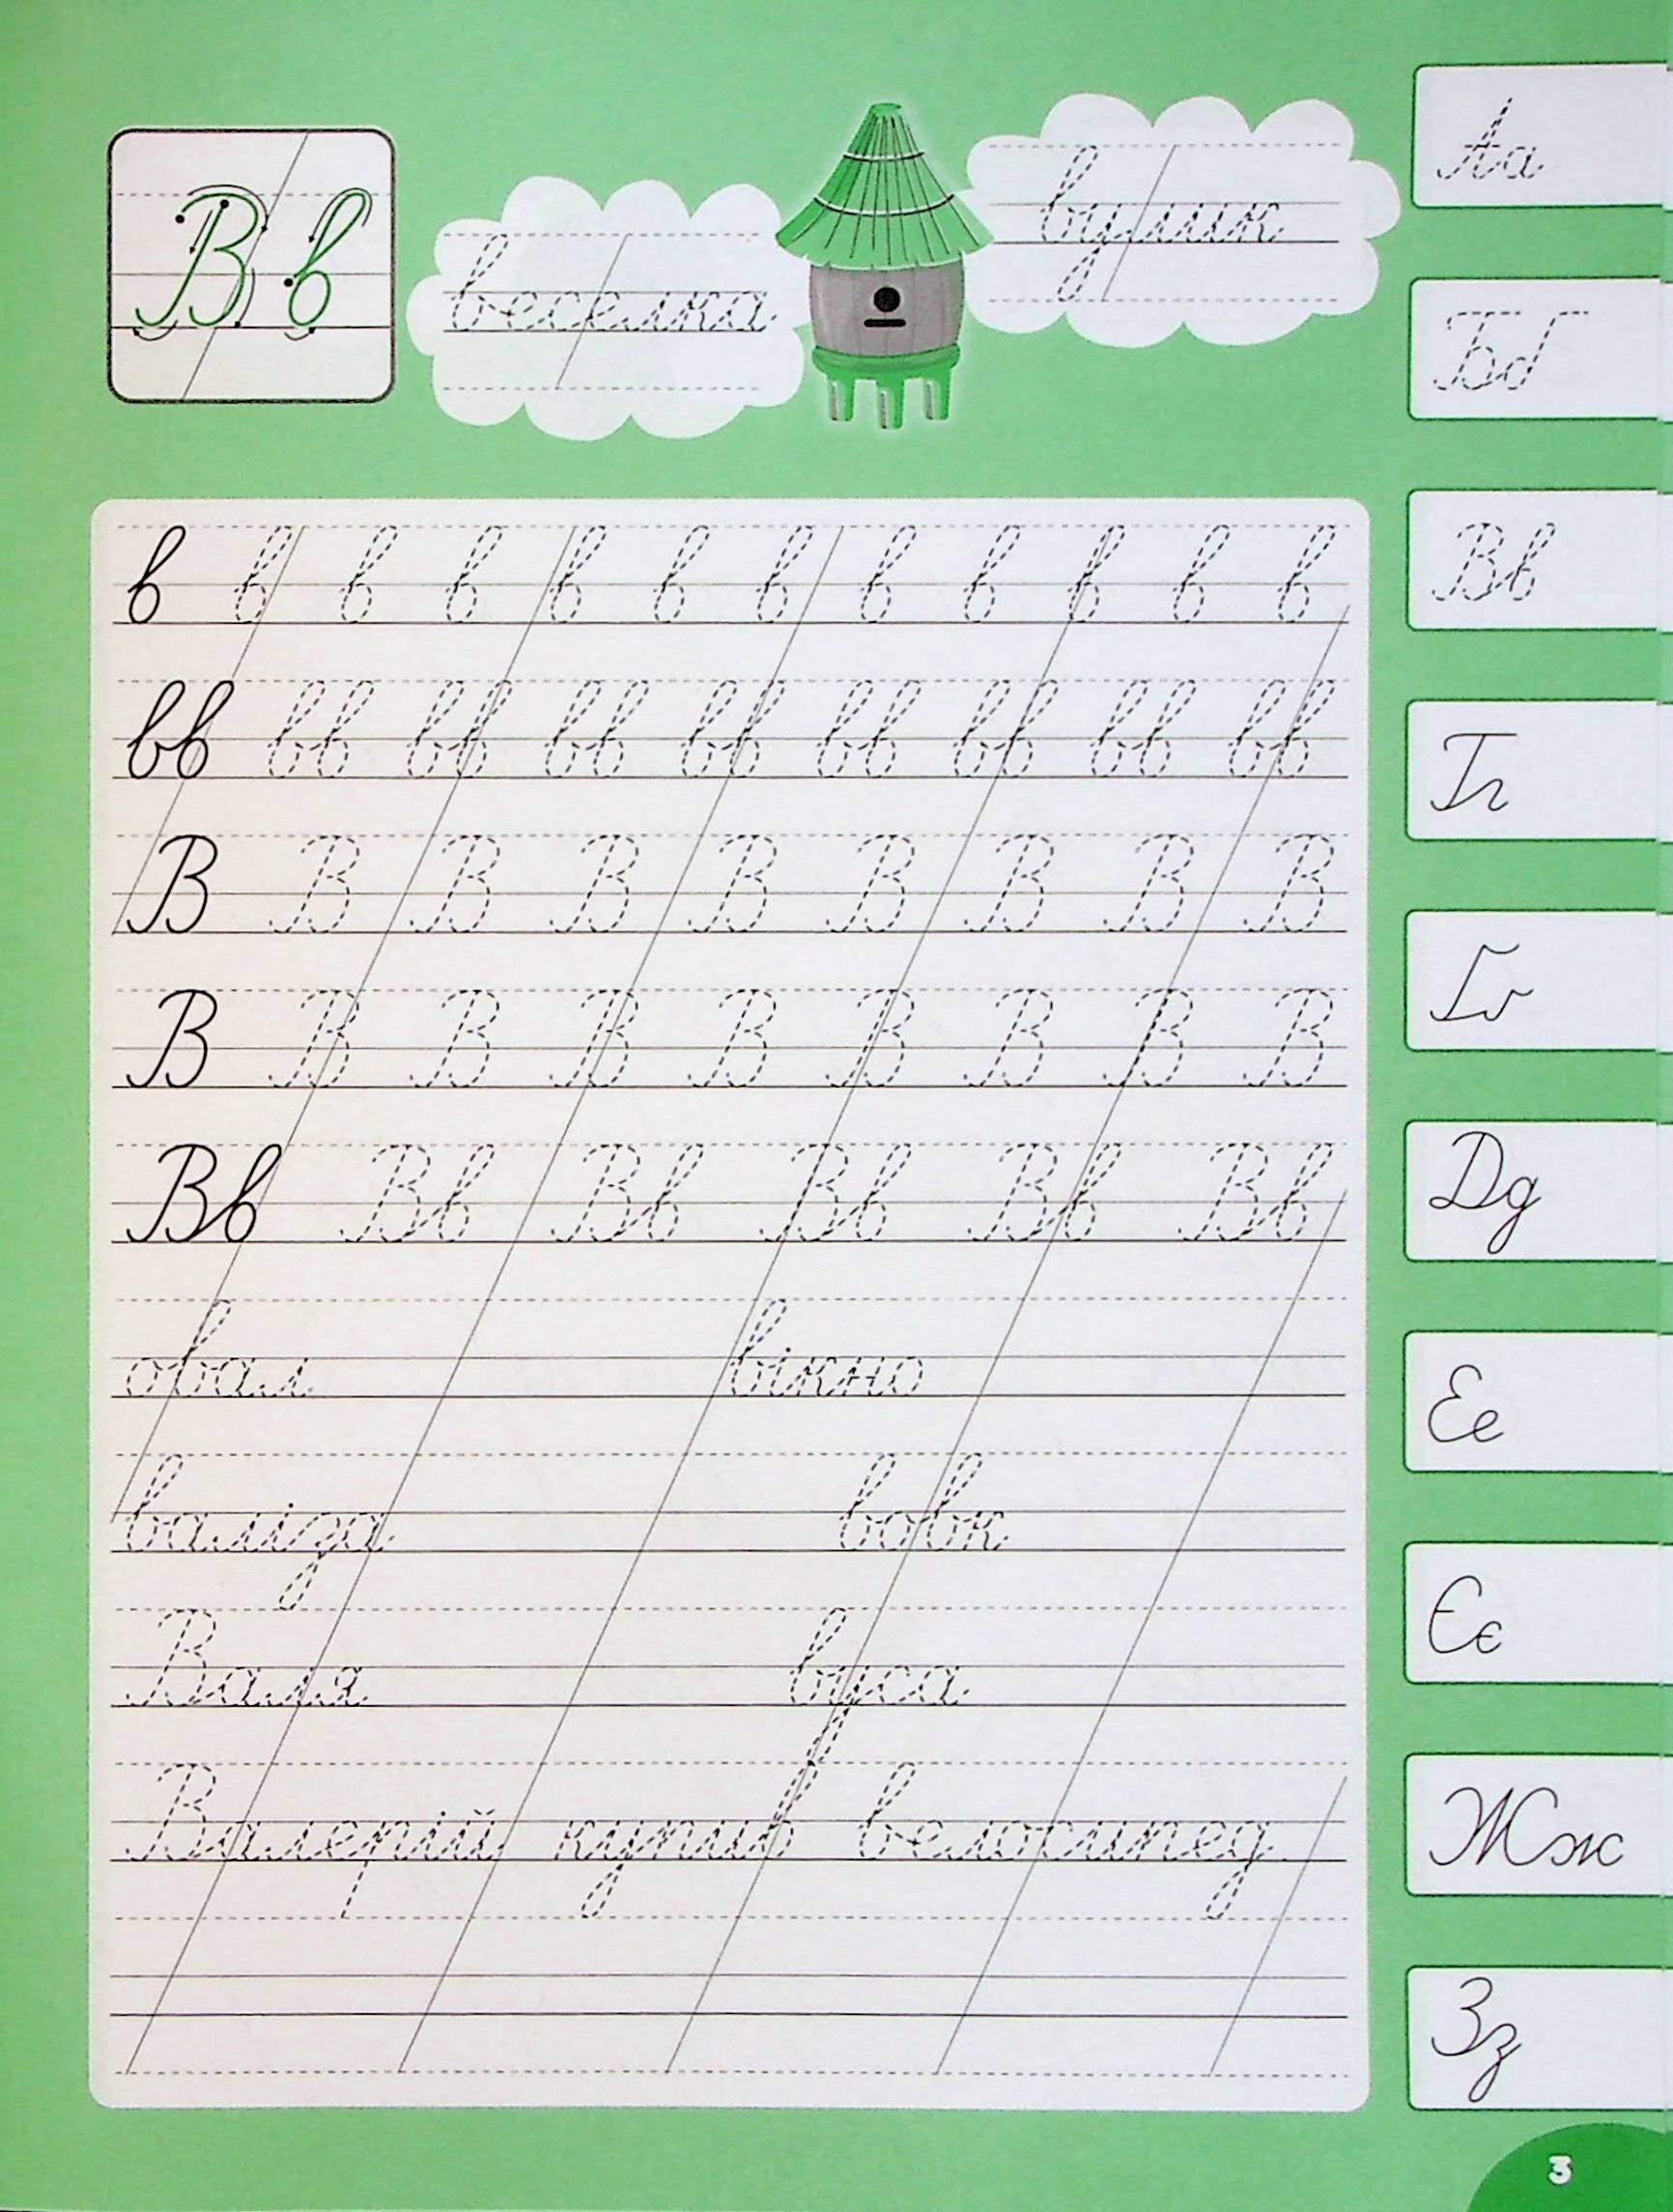 Вв
веселка
вулик
в в в в в в в в в в в в
вв вв вв вв вв вв вв вв вв
В В В В В В В В В
В В В В В В В В В
Вв Вв Вв Вв Вв Вв
овал вікно
валіза вовк
Валя вуса
Валерій купив велосипед
Аа
Бб
Вв
Гг
Ґґ
Дд
Ее
Єє
Жж
Зз
3